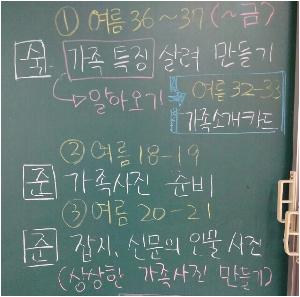 ① 여름 36~37 (~금)
숙 가족 특징 살려 만들기
→ 알아오기 → 여름 32-33
가족소개카드
② 여름 18-19
준 가족사진 준비
③ 여름 20-21
준 잡지, 신문의 인물 사진
(상상한 가족사진 만들기)